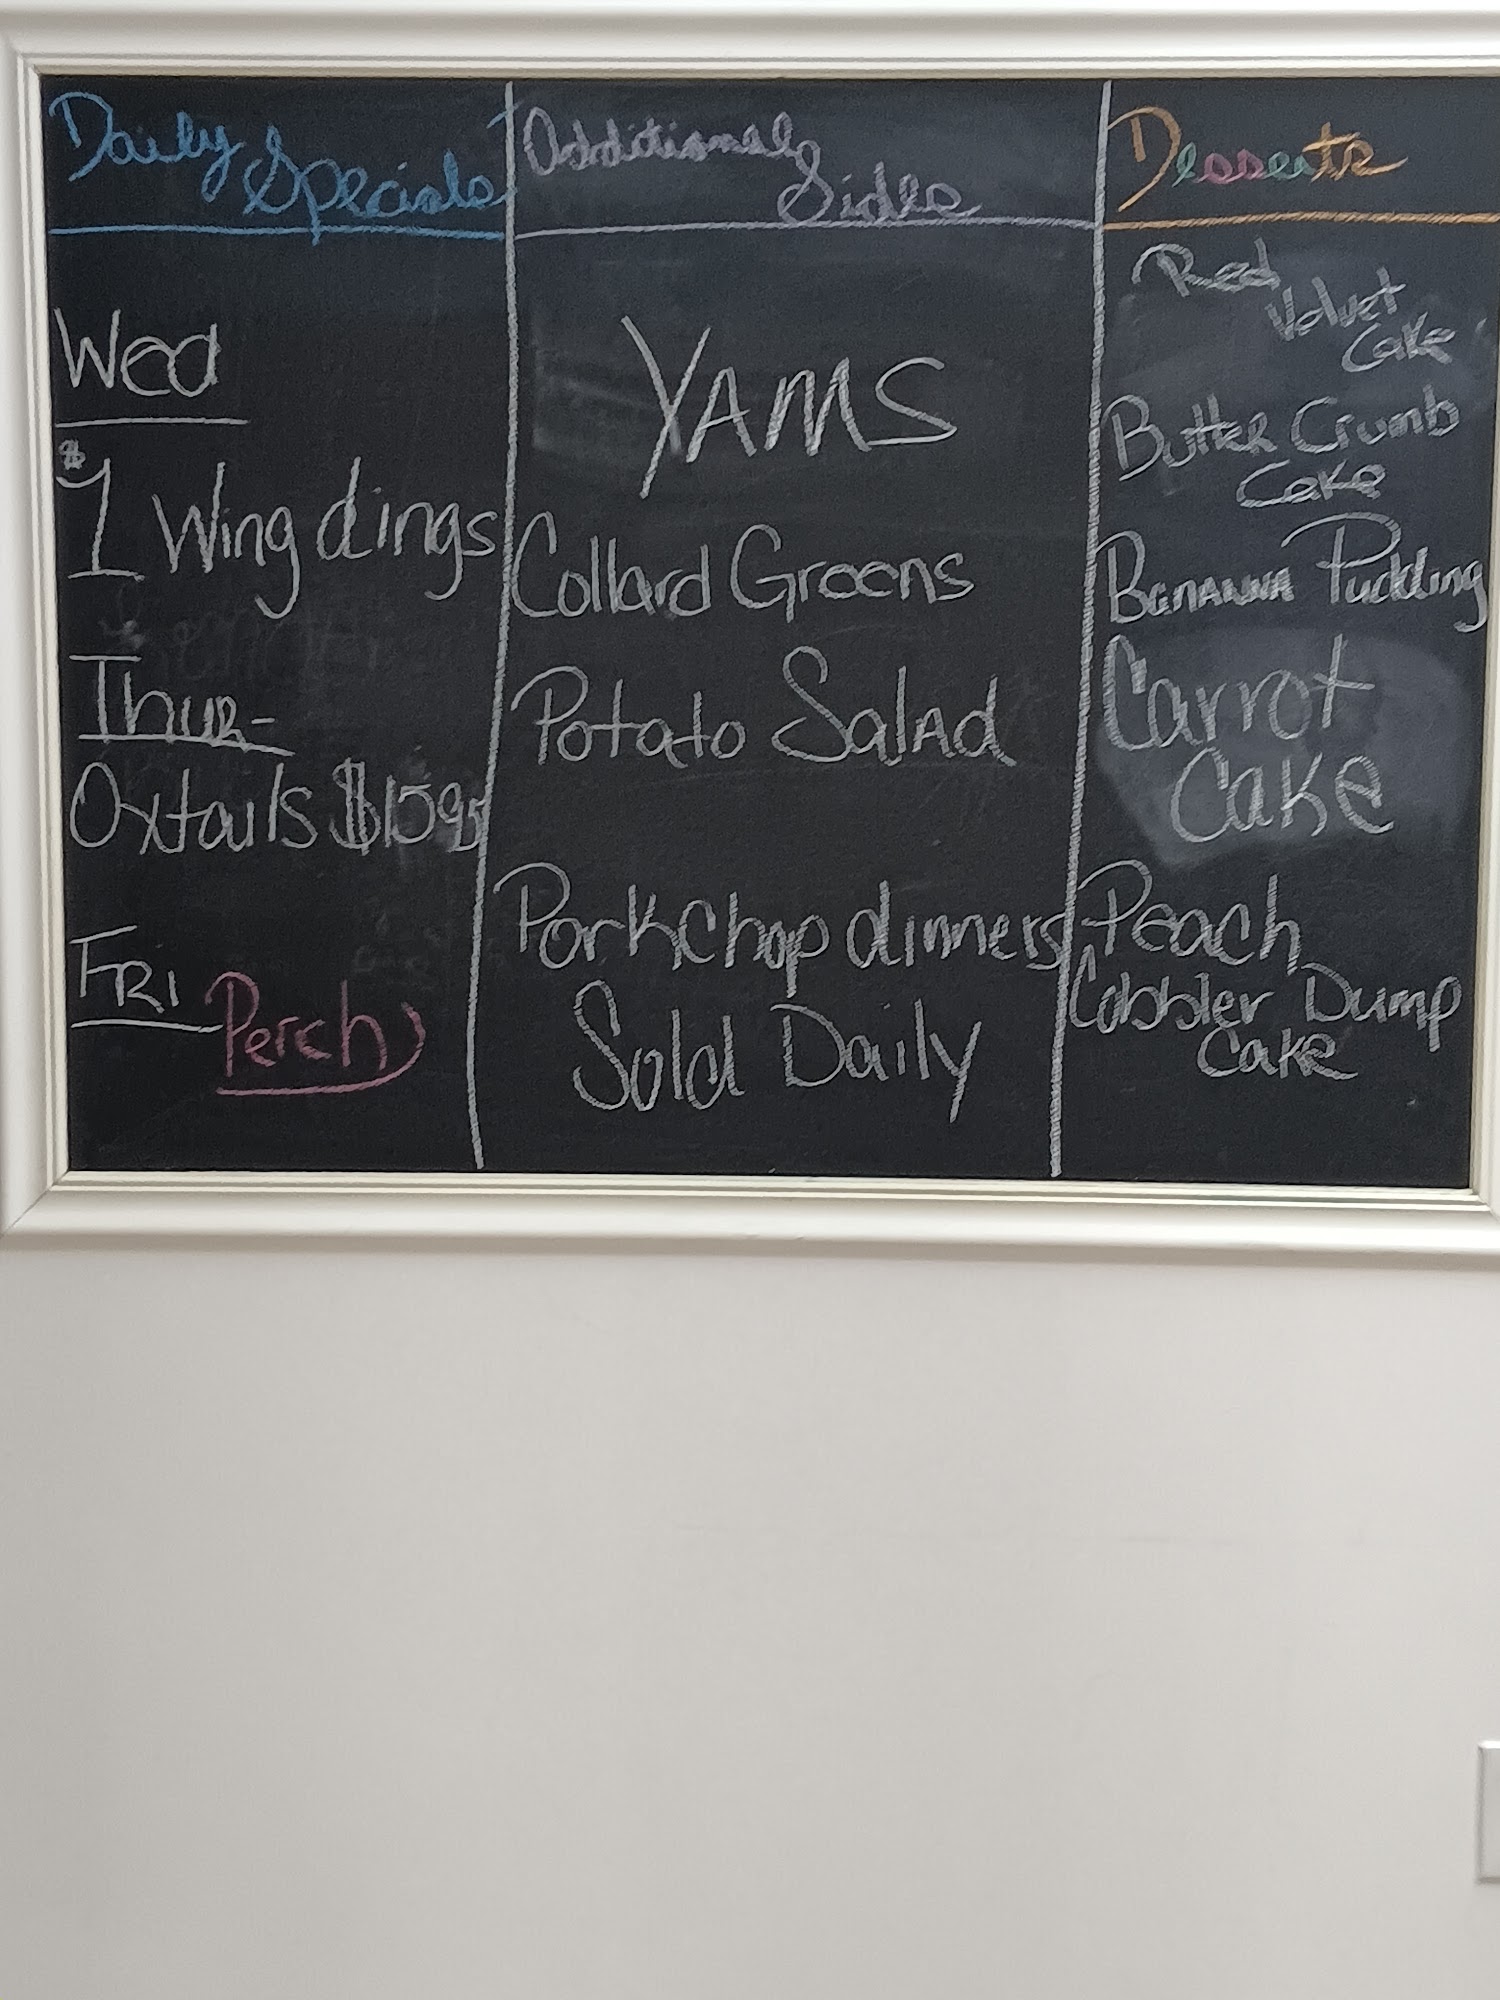 Daily
Specials
Wed
$1 Wing dings
Thur-
Oxtails $15.95
FRI
Perch
Additional
Sides
YAMS
Collard Greens
Potato Salad
Porkchop dinners
Sold Daily
Desserts
Red
Velvet
Cake
Butter Crumb
Cake
Bananna Pudding
Carrot
Cake
Peach
Cobbler Dump
Cake